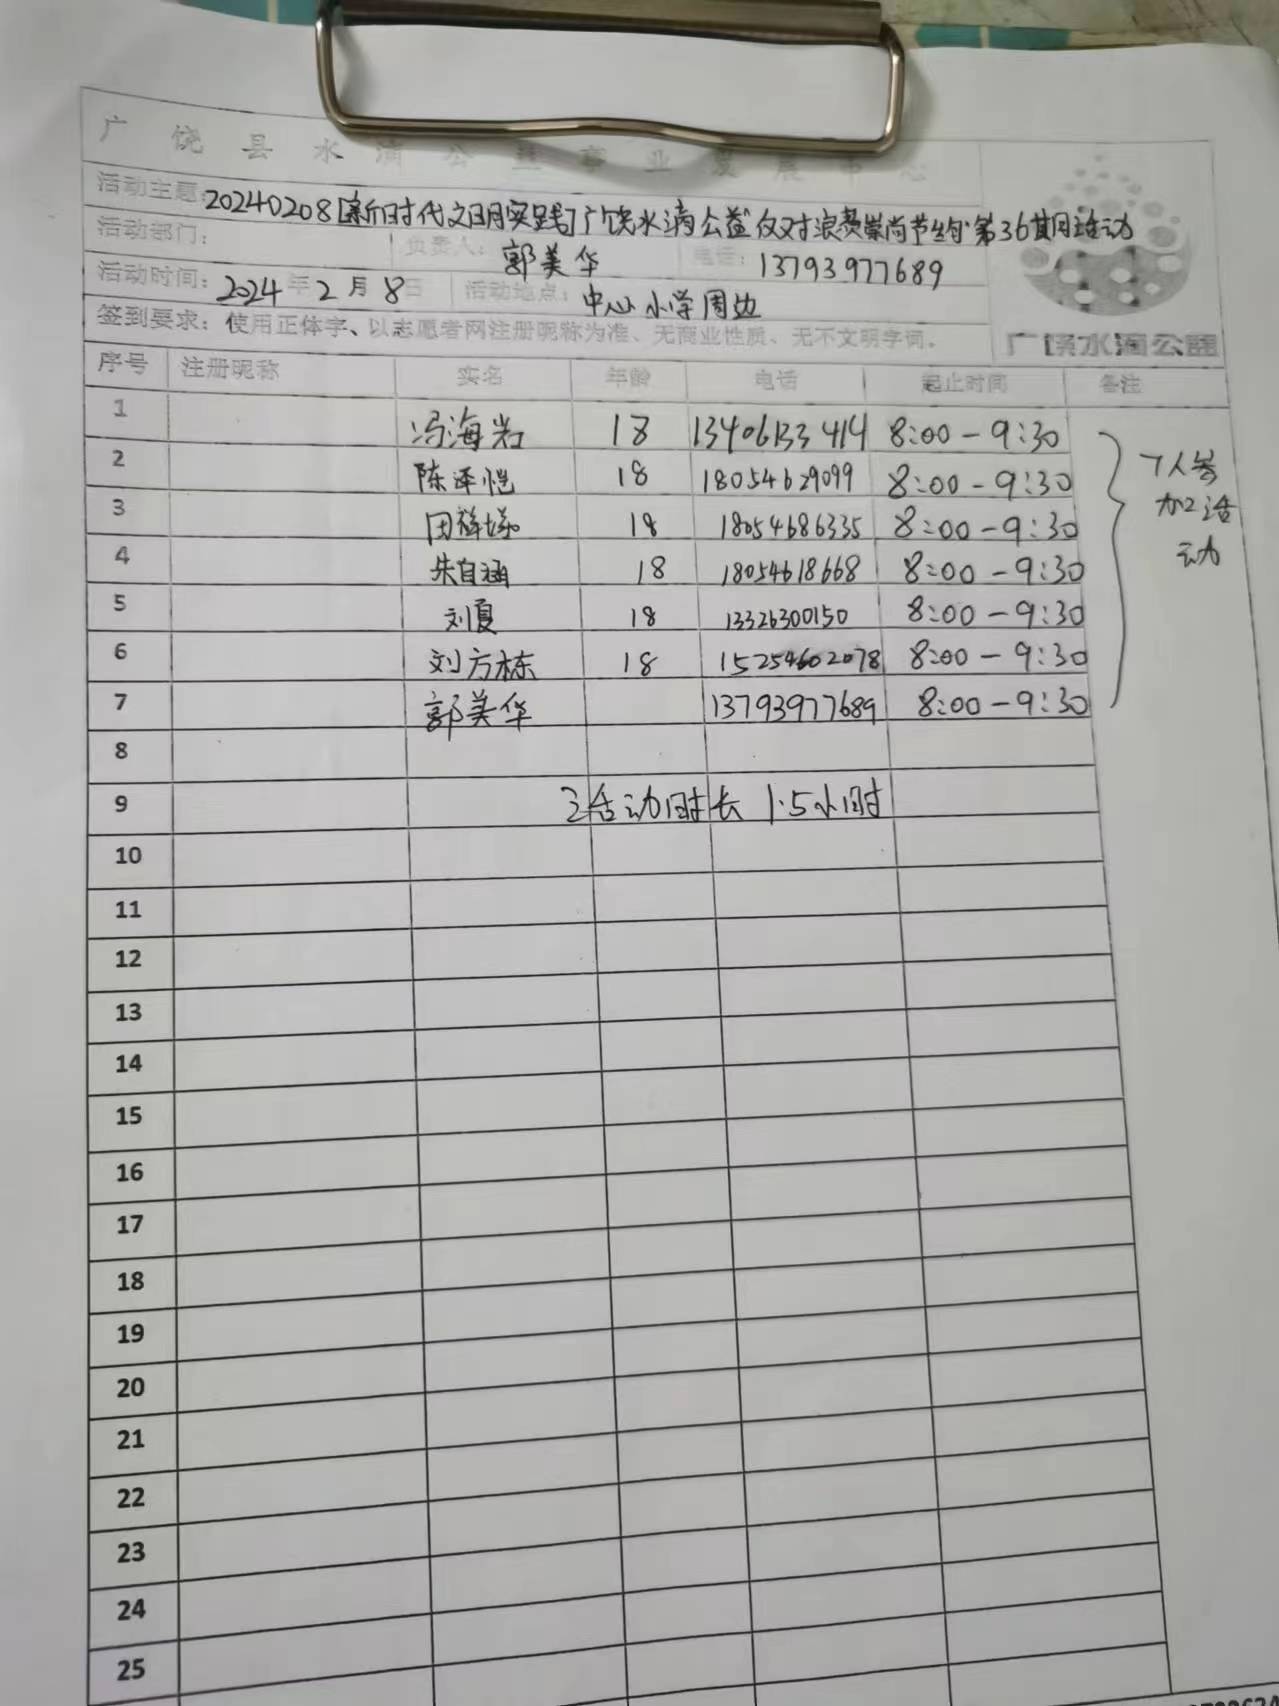 广饶县水滴公益事业发展中心
活动主题: 20240208【新时代文明实践】广饶水滴公益"反对浪费崇尚节约"第36期周边活动
活动部门: 负责人: 郭美华 电话: 13793977689
活动时间: 2024年2月8日 活动地点: 中心小学周边
签到要求: 使用正体字、以志愿者网注册昵称为准、无商业性质、无不文明字词.
广饶水滴公益
序号 注册昵称 实名 年龄 电话 起止时间 备注
1 冯海岩 18 13406133414 8:00-9:30
2 陈泽恺 18 18054629099 8:00-9:30
3 田 18 18054686335 8:00-9:30
4 朱自涵 18 18054618668 8:00-9:30
5 刘夏 18 13326300150 8:00-9:30
6 刘方栋 18 15254602078 8:00-9:30
7 郭美华 13793977689 8:00-9:30
7人参
加活
动
8
9 活动时长 1.5小时
10
11
12
13
14
15
16
17
18
19
20
21
22
23
24
25